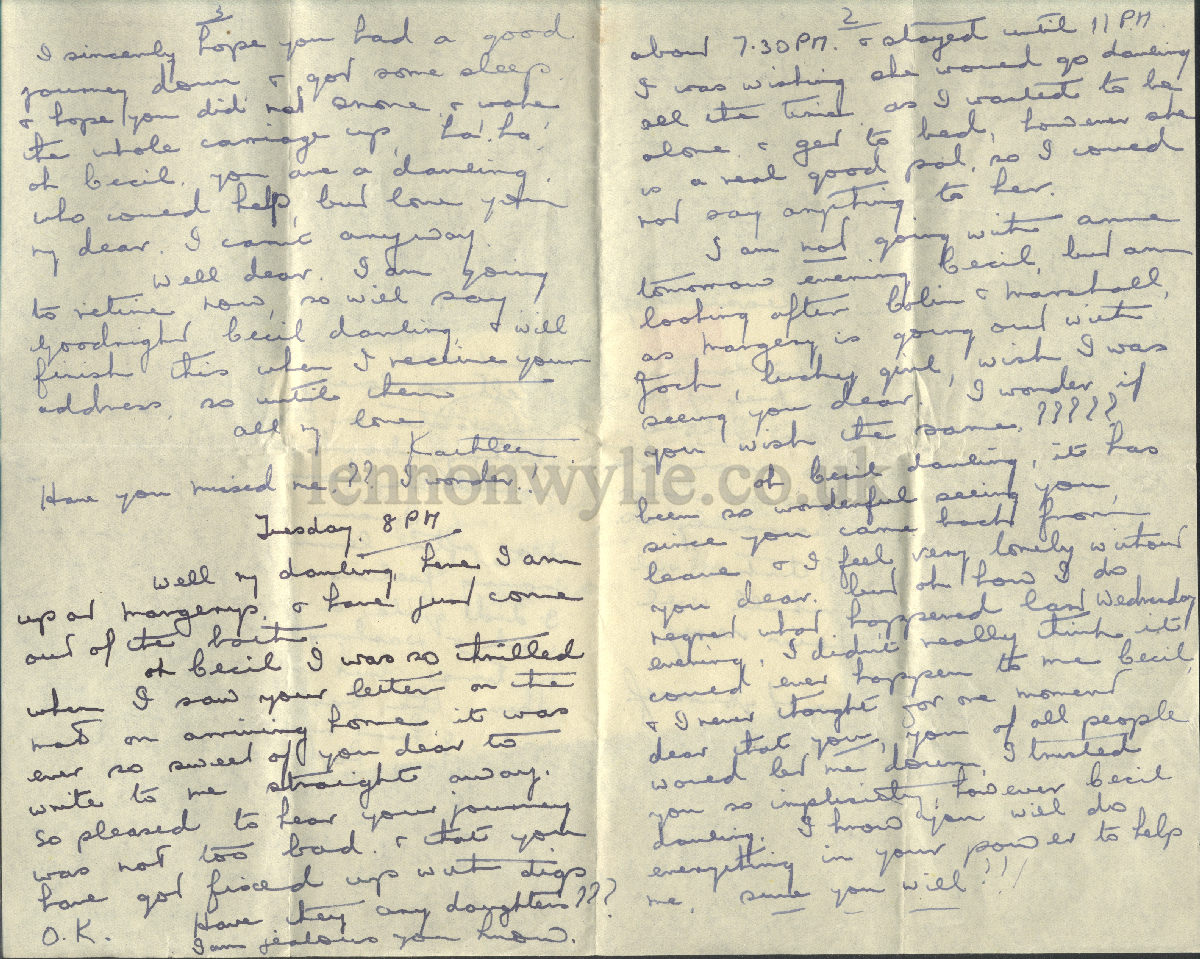 2
about 7.30 PM. & stayed until 11 PM.
I was wishing she would go darling
all the time, as I wanted to be
alone & get to bed, however she
is a real good pal, so I could
not say anything to her.
I am not going with Anne
tomorrow evening Cecil, but am
looking after Colin & Marshall,
as Margery is going out with
Jock, lucky girl, wish I was
seeing you dear. I wonder if
you wish the same. ?????
oh Cecil darling, it has
been so wonderful seeing you,
since you came back from
leave & I feel very lonely without
you dear. but oh how I do
regret what happened last Wednesday
evening, I didn't really think it
could ever happen to me Cecil,
& I never thought for one moment
dear that you, you of all people
would let me down, I trusted
you so implisisty, however Cecil
darling. I know you will do
everything in your power to help
me, sure you will!!!
3
I sincerely hope you had a good
journey down & got some sleep
& hope you did not snore & wake
the whole carriage up, ha! ha!
oh Cecil, you are a darling.
who could help, but love you
my dear. I can't anyway.
Well dear. I am going
to retire now, so will say
Goodnight Cecil darling, & will
finish this when I receive your
address, so until then
all my love
Kathleen.
Have you missed me?? I wonder!
Tuesday. 8 PM
Well my darling, here I am
up at Margerys. & have just come
out of the bath.
oh Cecil I was so thrilled
when I saw your letter on the
mat on arriving home it was
ever so sweet of you dear to
write to me straight away.
So pleased to hear your journey
was not too bad. & that you
have got fixed up with digs
O.K. Have they any daughters???
I am jealous you know.
lennonwylie.co.uk